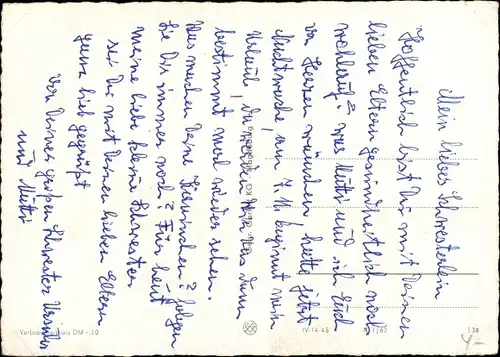 Mein liebes Schwesterlein
Hoffentlich bist Du mit Deinen
lieben Eltern gesundheitlich noch
wohlauf = was Mutti und ich Euch
von Herzen wünschen hätte jetzt
Nachtwache, am 7.11. beginnt mein
Urlaub, da werden wir uns dann
bestimmt mal wieder sehen.
Was machen Deine Kaninchen? folgen
sie Dir immer noch? Für heut
meine liebe kleine Schwester
sei Du mit Deinen lieben Eltern
ganz lieb gegrüßt
von Deiner großen Schwester Ursula
und Mutti
DM -.10
IV-14-45
N 1/62
E 38